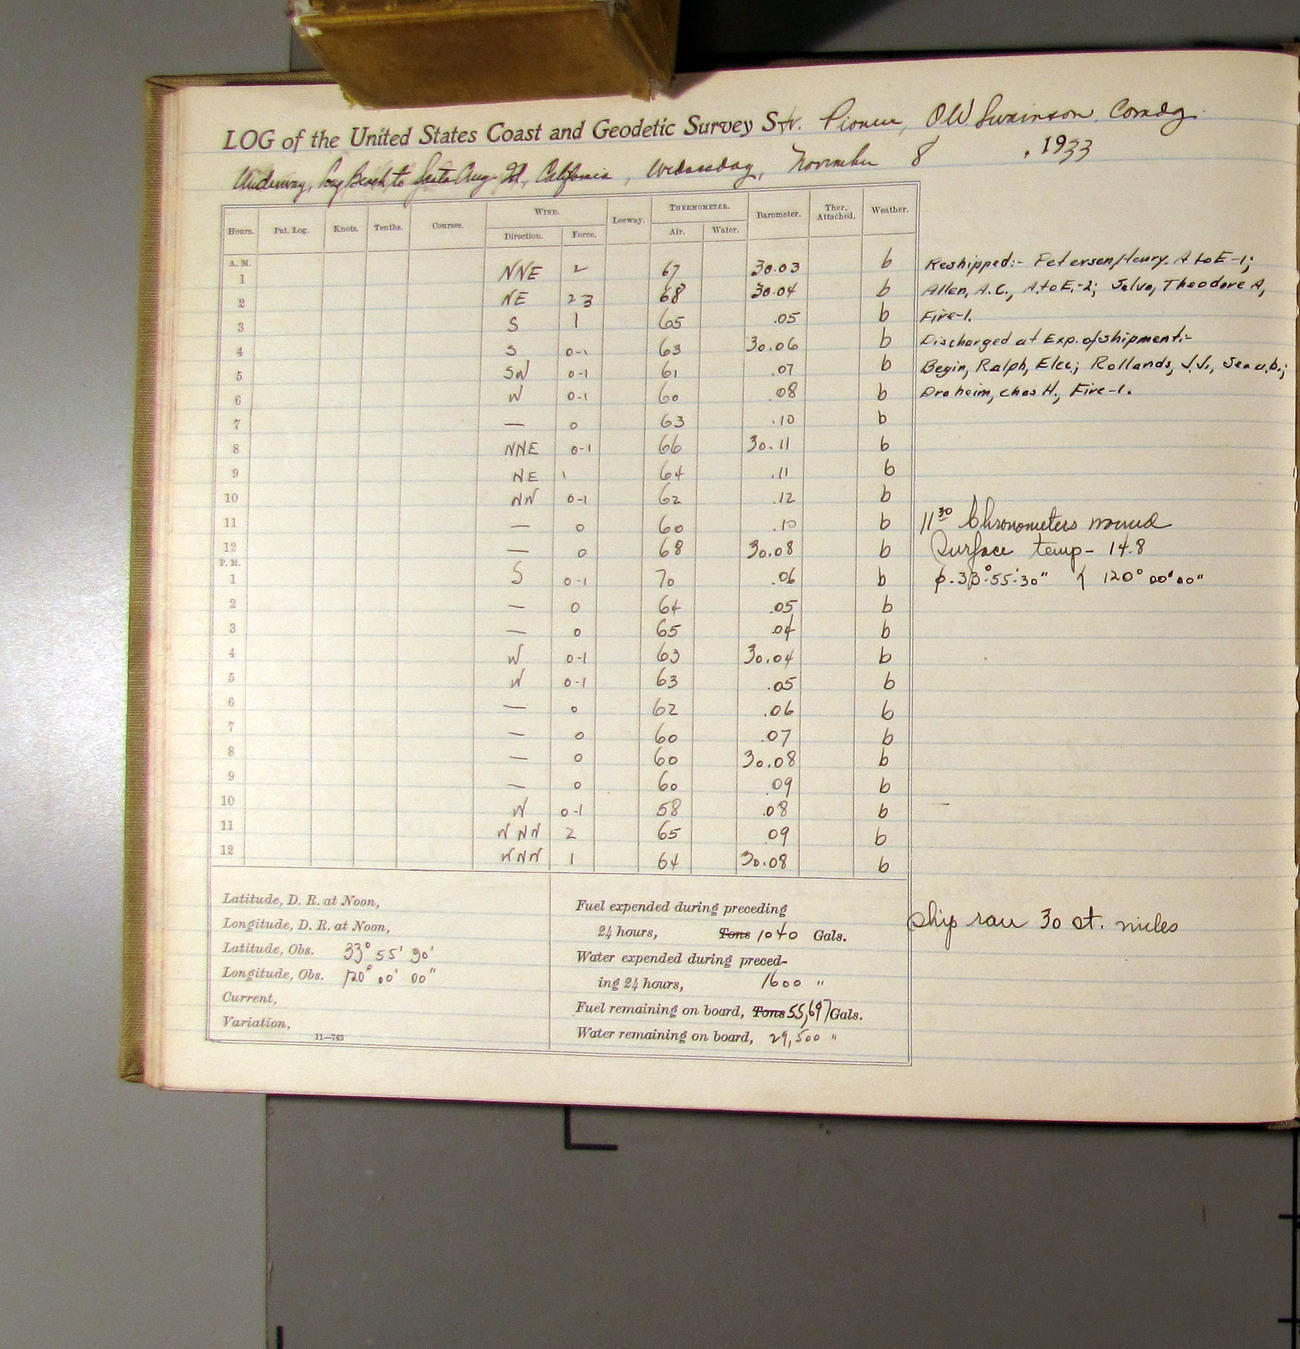 LOG of the United States Coast and Geodetic Survey Str. Pioneer, O W Swainson, Comdg.
Underway, Long Beach to Calif California, Wednesday, November 8, 1933
Hours. Pat. Log. Knots. Tenths. Courses. WIND. Direction. Force. Leeway. THERMOMETER. Air. Water. Barometer. Ther. Attached. Weather.
A. M.
1 NNE 2 67 30.03 b Reshipped:- Petersen, Henry. A to E-1;
2 NE 2 3 68 30.04 b Allen, A.C., A to E-2; Selvo, Theodore A,
3 S 1 65 .05 b Fire-1.
4 S 0-1 63 30.06 b Discharged at Exp. of shipment:-
5 SW 0-1 61 .07 b Begin, Ralph, Elec; Rollands, J.J., Sea a.b.;
6 W 0-1 60 .08 b Draheim, Chas H., Fire-1.
7 — 0 63 .10 b
8 NNE 0-1 66 30.11 b
9 NE 1 64 .11 b
10 NW 0-1 62 .12 b
11 — 0 60 .10 b 11 30 Chronometers wound
12 — 0 68 30.08 b Surface temp- 14.8
P. M.
1 S 0-1 70 .06 b φ. 33°-55'-30" 120° 00' 00"
2 — 0 64 .05 b
3 — 0 65 .04 b
4 W 0-1 63 30.04 b
5 W 0-1 63 .05 b
6 — 0 62 .06 b
7 — 0 60 .07 b
8 — 0 60 30.08 b
9 — 0 60 .09 b
10 W 0-1 58 .08 b
11 WNW 2 65 .09 b
12 WNW 1 64 30.08 b
Latitude, D. R. at Noon,
Longitude, D. R. at Noon,
Latitude, Obs. 33° 55' 30'
Longitude, Obs. 120° 00' 00"
Current,
Variation,
11—743
Fuel expended during preceding
24 hours, Tons 1040 Gals.
Water expended during preced-
ing 24 hours, 1600 "
Fuel remaining on board, Tons 55,697 Gals.
Water remaining on board, 29,500 "
Ship ran 30 st. miles